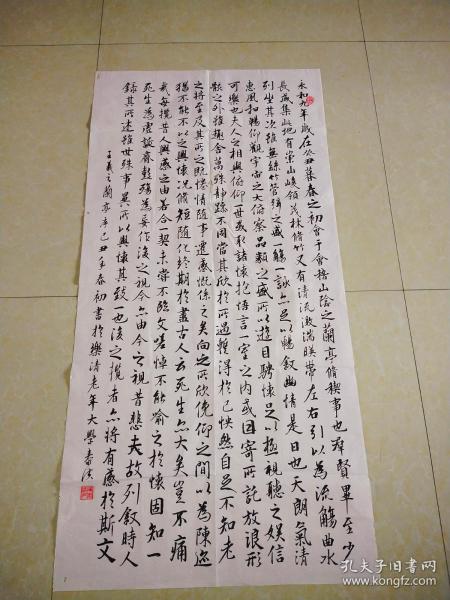 永和九年歲在癸丑暮春之初會于會稽山陰之蘭亭脩稧事也群賢畢至少
長咸集此地有崇山峻領茂林脩竹又有清流激湍暎帶左右引以為流觴曲水
列坐其次雖無絲竹管弦之盛一觴一詠亦足以暢叙幽情是日也天朗氣清
惠風和暢仰觀宇宙之大俯察品類之盛所以遊目騁懷足以極視聽之娛信
可樂也夫人之相與俯仰一世或取諸懷抱悟言一室之内或因寄所託放浪形
骸之外雖趣舍萬殊靜躁不同當其欣於所遇暫得於己怏然自足不知老
之將至及其所之既惓情隨事遷感慨係之矣向之所欣俛仰之間以為陳迹
猶不能不以之興懷况脩短隨化終期於盡古人云死生亦大矣豈不痛
哉每攬昔人興感之由若合一契未嘗不臨文嗟悼不能喻之於懷固知一
死生為虛誕齊彭殤為妄作後之視今亦由今之視昔悲夫故列叙時人
錄其所述雖世殊事異所以興懷其致一也後之攬者亦將有感於斯文
王羲之蘭亭序己丑年春初書於樂清老年大學
孔夫子旧书网